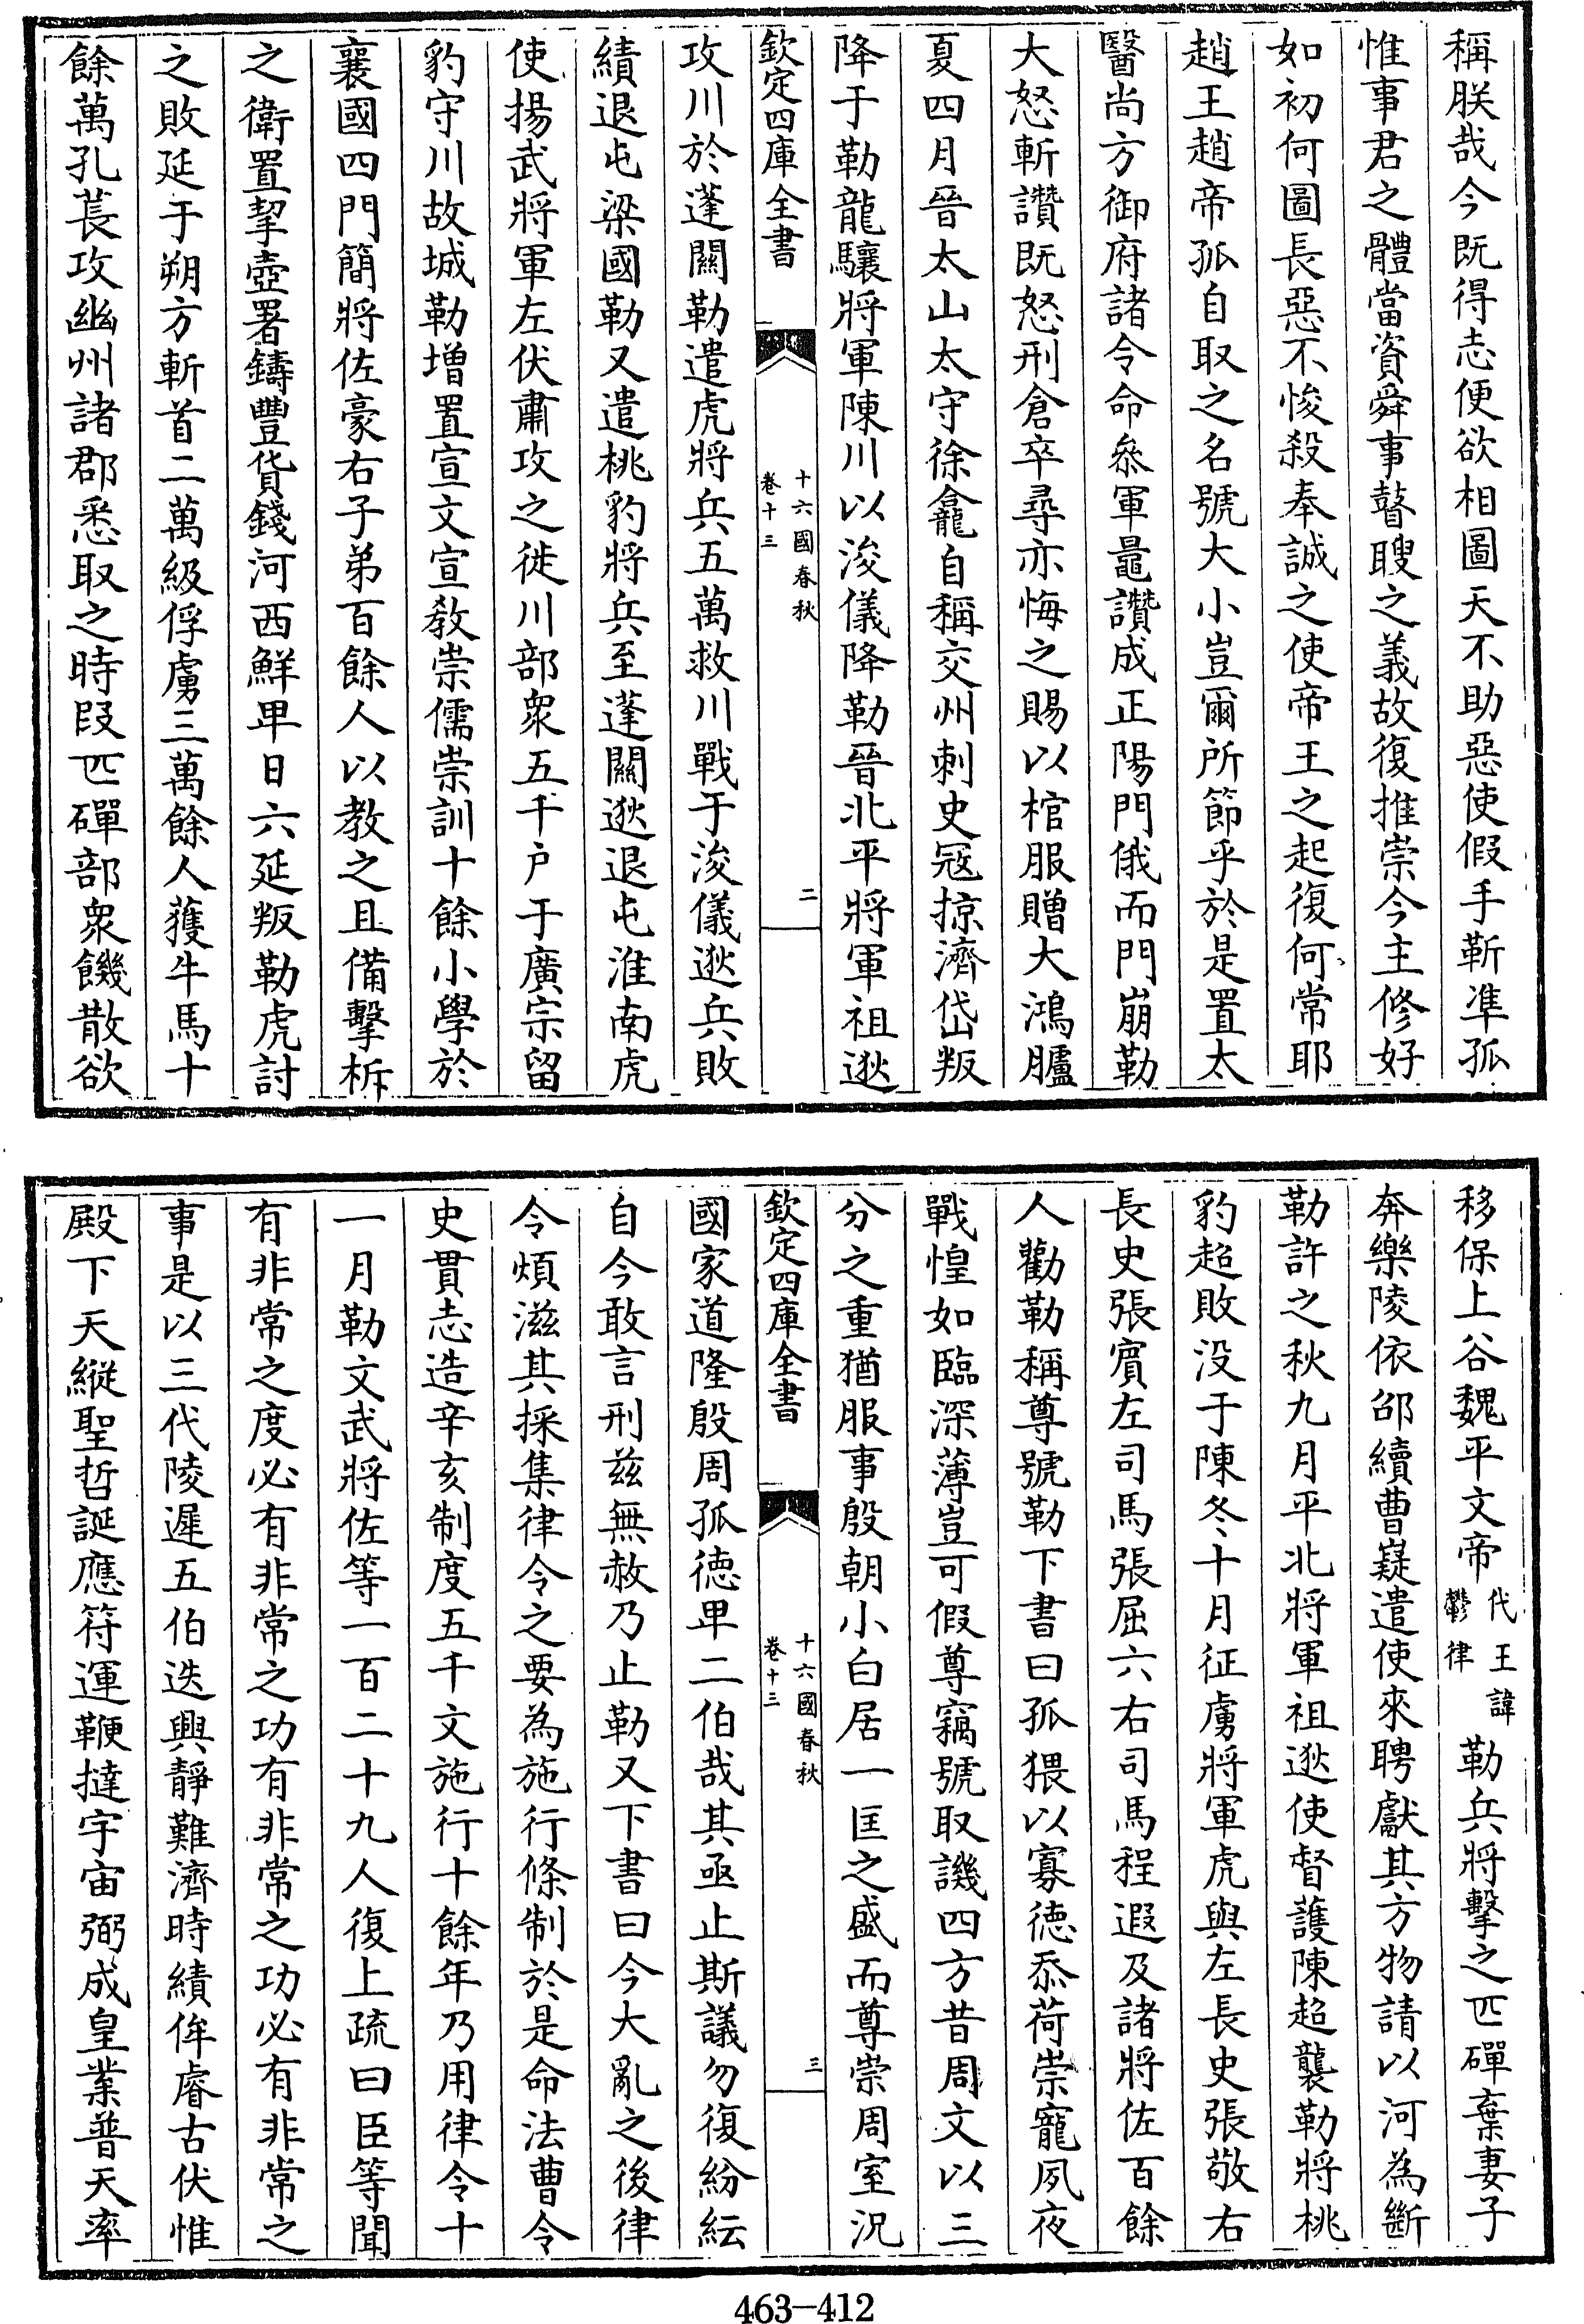 稱朕哉今既得志便欲相圖天不助惡使假手靳準孤
惟事君之體當資舜事瞽瞍之義故復推崇今主修好
如初何圖長惡不悛殺奉誠之使帝王之起復何常耶
趙王趙帝孤自取之名號大小豈爾所節乎於是置太
醫尚方御府諸令命叅軍鼂讃成正陽門俄而門崩勒
大怒斬讃既怒刑倉卒尋亦悔之賜以棺服贈大鴻臚
夏四月晉太山太守徐龕自稱交州刺史寇掠濟岱叛
降于勒龍驤將軍陳川以浚儀降勒晉北平將軍祖逖
欽定四庫全書
十六國春秋
卷十三
二
攻川於蓬關勒遣虎將兵五萬救川戰于浚儀逖兵敗
績退屯梁國勒又遣桃豹將兵至蓬關逖退屯淮南虎
使揚武將軍左伏肅攻之徙川部衆五千户于廣宗留
豹守川故城勒增置宣文宣教崇儒崇訓十餘小學於
襄國四門簡將佐豪右子弟百餘人以教之且備擊柝
之衛置挈壺署鑄豐貨錢河西鮮卑日六延叛勒虎討
之敗延于朔方斬首二萬級俘虜三萬餘人獲牛馬十
餘萬孔萇攻幽州諸郡悉取之時叚匹磾部衆饑散欲
移保上谷魏平文帝代王諱鬱律勒兵將擊之匹磾棄妻子
奔樂陵依邵續曹嶷遣使來聘獻其方物請以河為斷
勒許之秋九月平北將軍祖逖使督護陳超襲勒將桃
豹超敗没于陳冬十月征虜將軍虎與左長史張敬右
長史張賓左司馬張屈六右司馬程遐及諸將佐百餘
人勸勒稱尊號勒下書曰孤猥以寡德忝荷崇寵夙夜
戰惶如臨深薄豈可假尊竊號取譏四方昔周文以三
分之重猶服事殷朝小白居一匡之盛而尊崇周室况
欽定四庫全書
十六國春秋
卷十三
三
國家道隆殷周孤德卑二伯哉其亟止斯議勿復紛紜
自今敢言刑兹無赦乃止勒又下書曰今大亂之後律
令煩滋其採集律令之要為施行條制於是命法曹令
史貫志造辛亥制度五千文施行十餘年乃用律令十
一月勒文武將佐等一百二十九人復上疏曰臣等聞
有非常之度必有非常之功有非常之功必有非常之
事是以三代陵遲五伯迭興靜難濟時績侔睿古伏惟
殿下天縱聖哲誕應符運鞭撻宇宙弼成皇業普天率
463-412